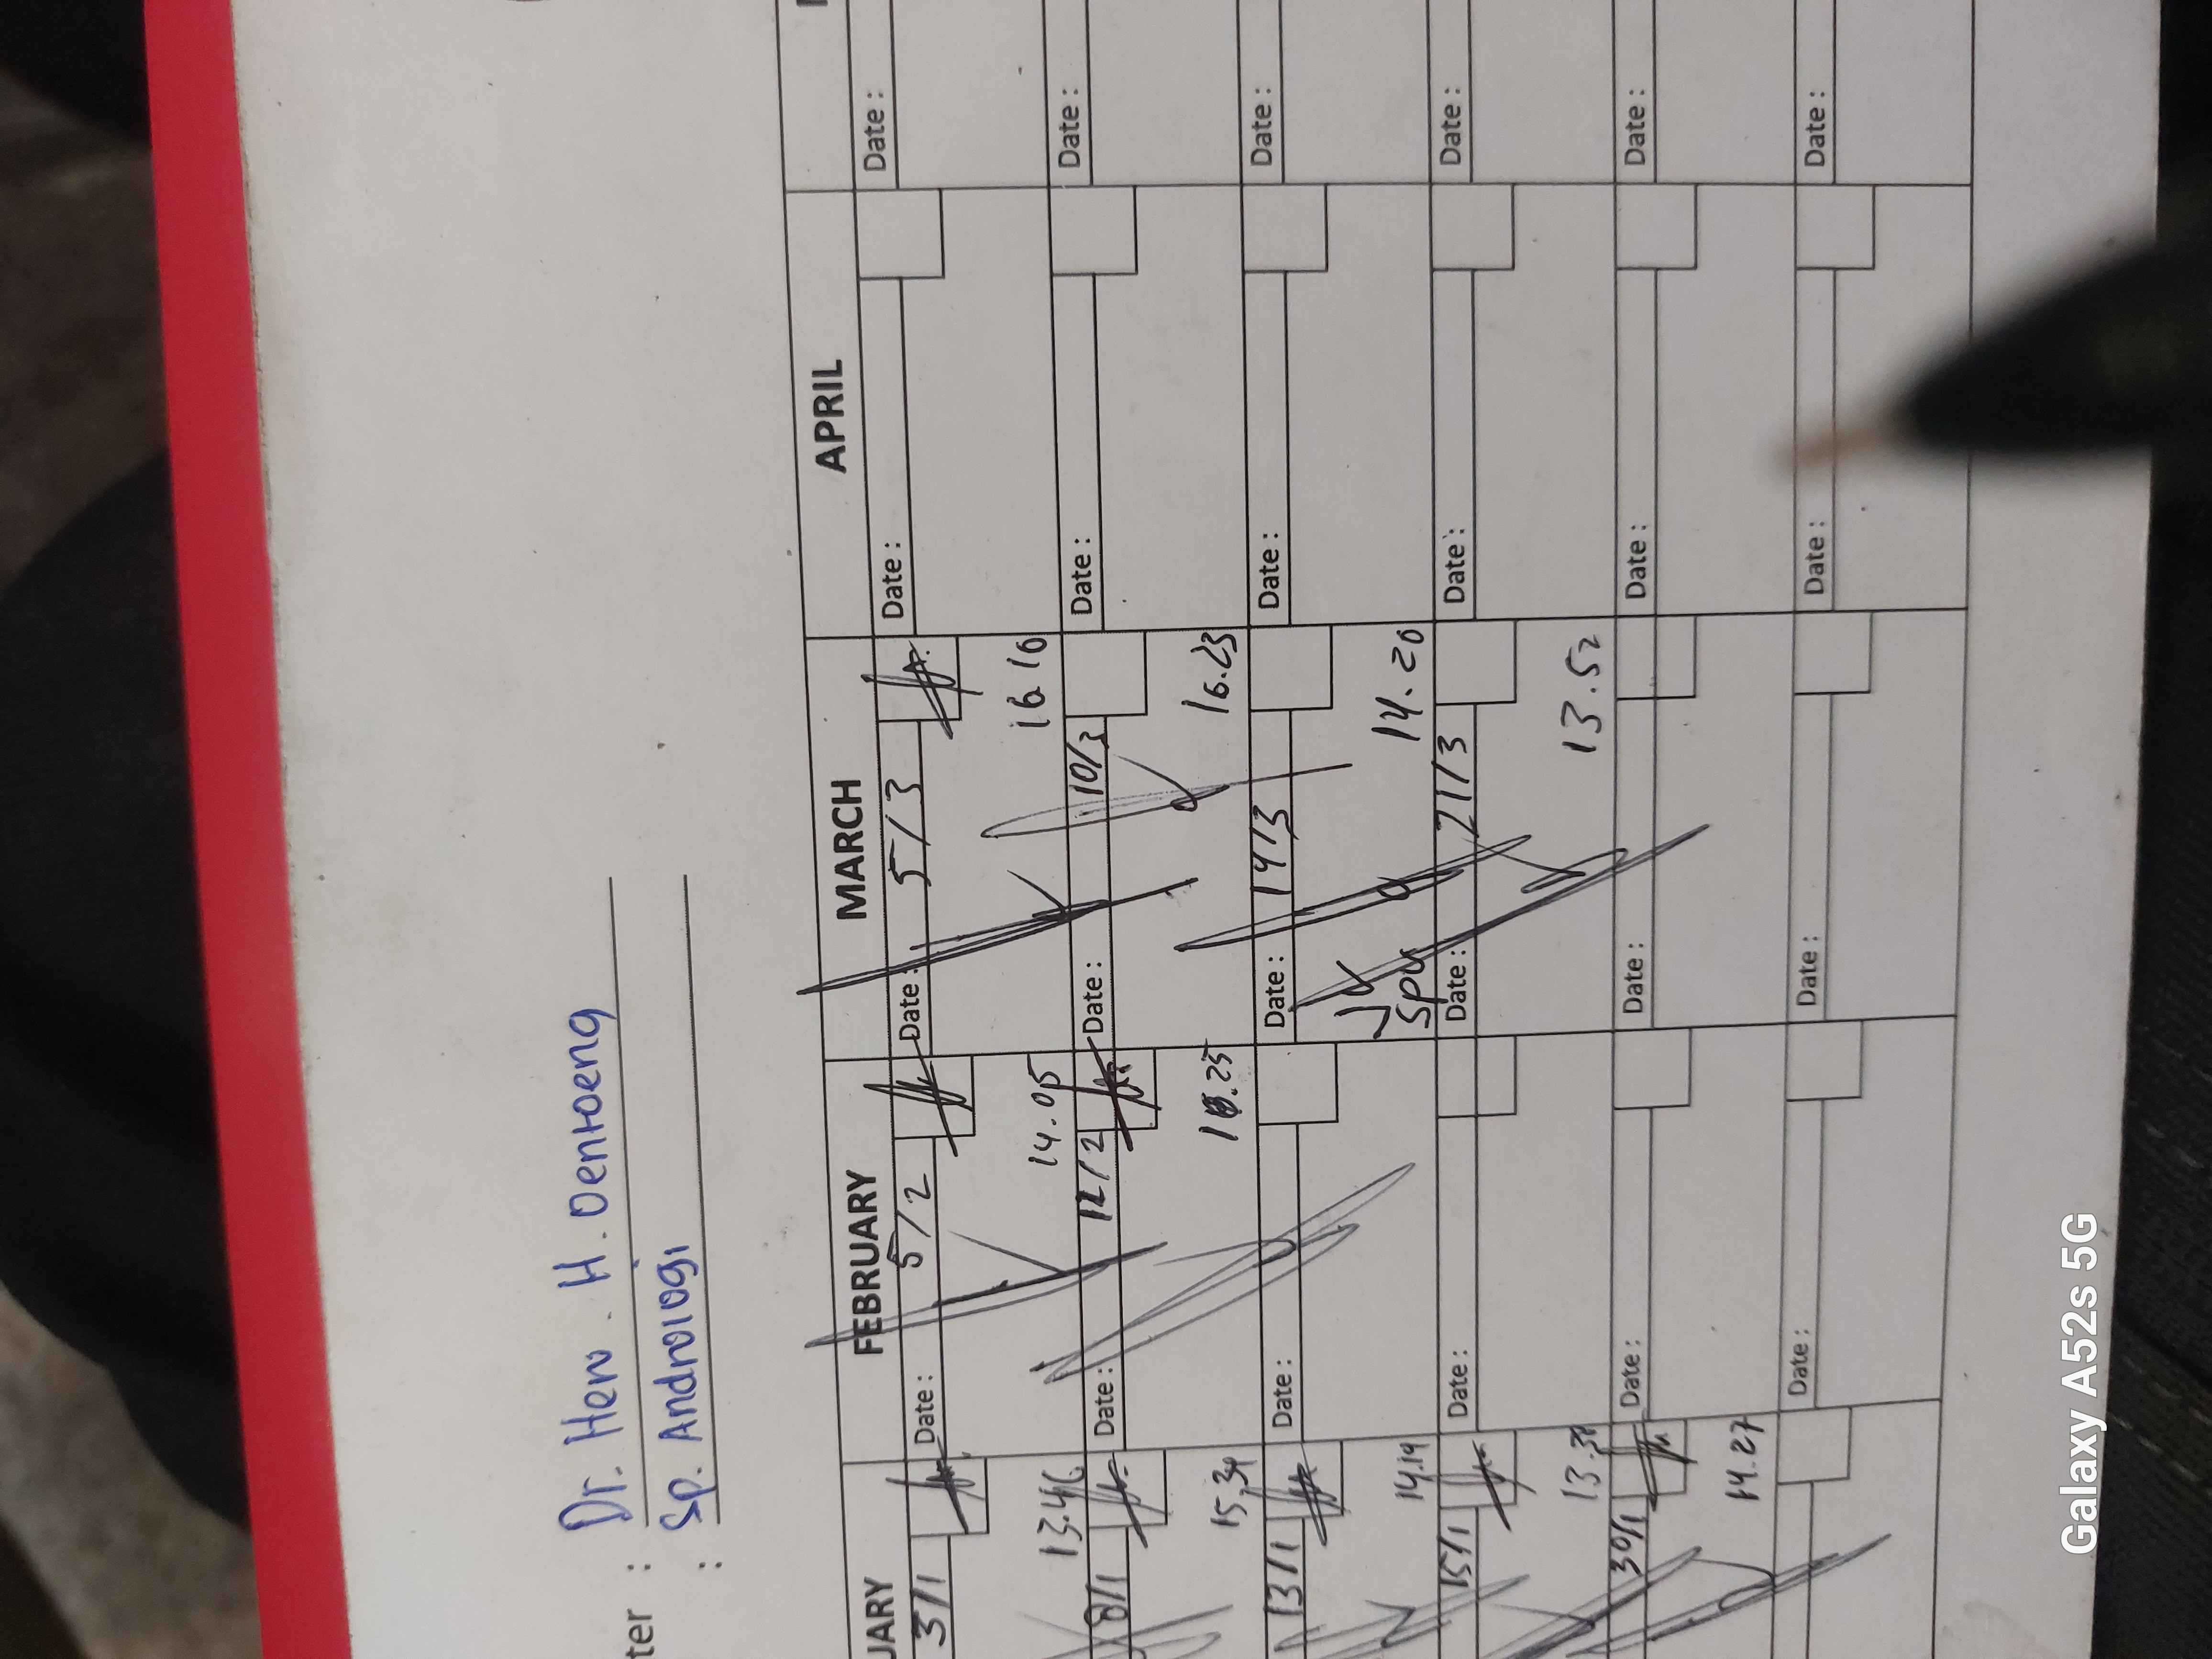 ter : Dr. Heru . H. Oentoeng
: Sp. Andrologi
UARY FEBRUARY MARCH APRIL
3/1 Date : 5/2 Date : 5/3 Date : Date :
13.46 14.05 16 10
8/1 Date : 12/2 Date : 10/3 Date : Date :
15.34 18.25 16.23
13/1 Date : Date : 14/3 Date : Date :
14.19 14.20
15/1 Date : Date : 21/3 Date : Date :
13.52
30/1 Date : Date : Date : Date :
14.27
Date : Date : Date : Date :
Galaxy A52s 5G